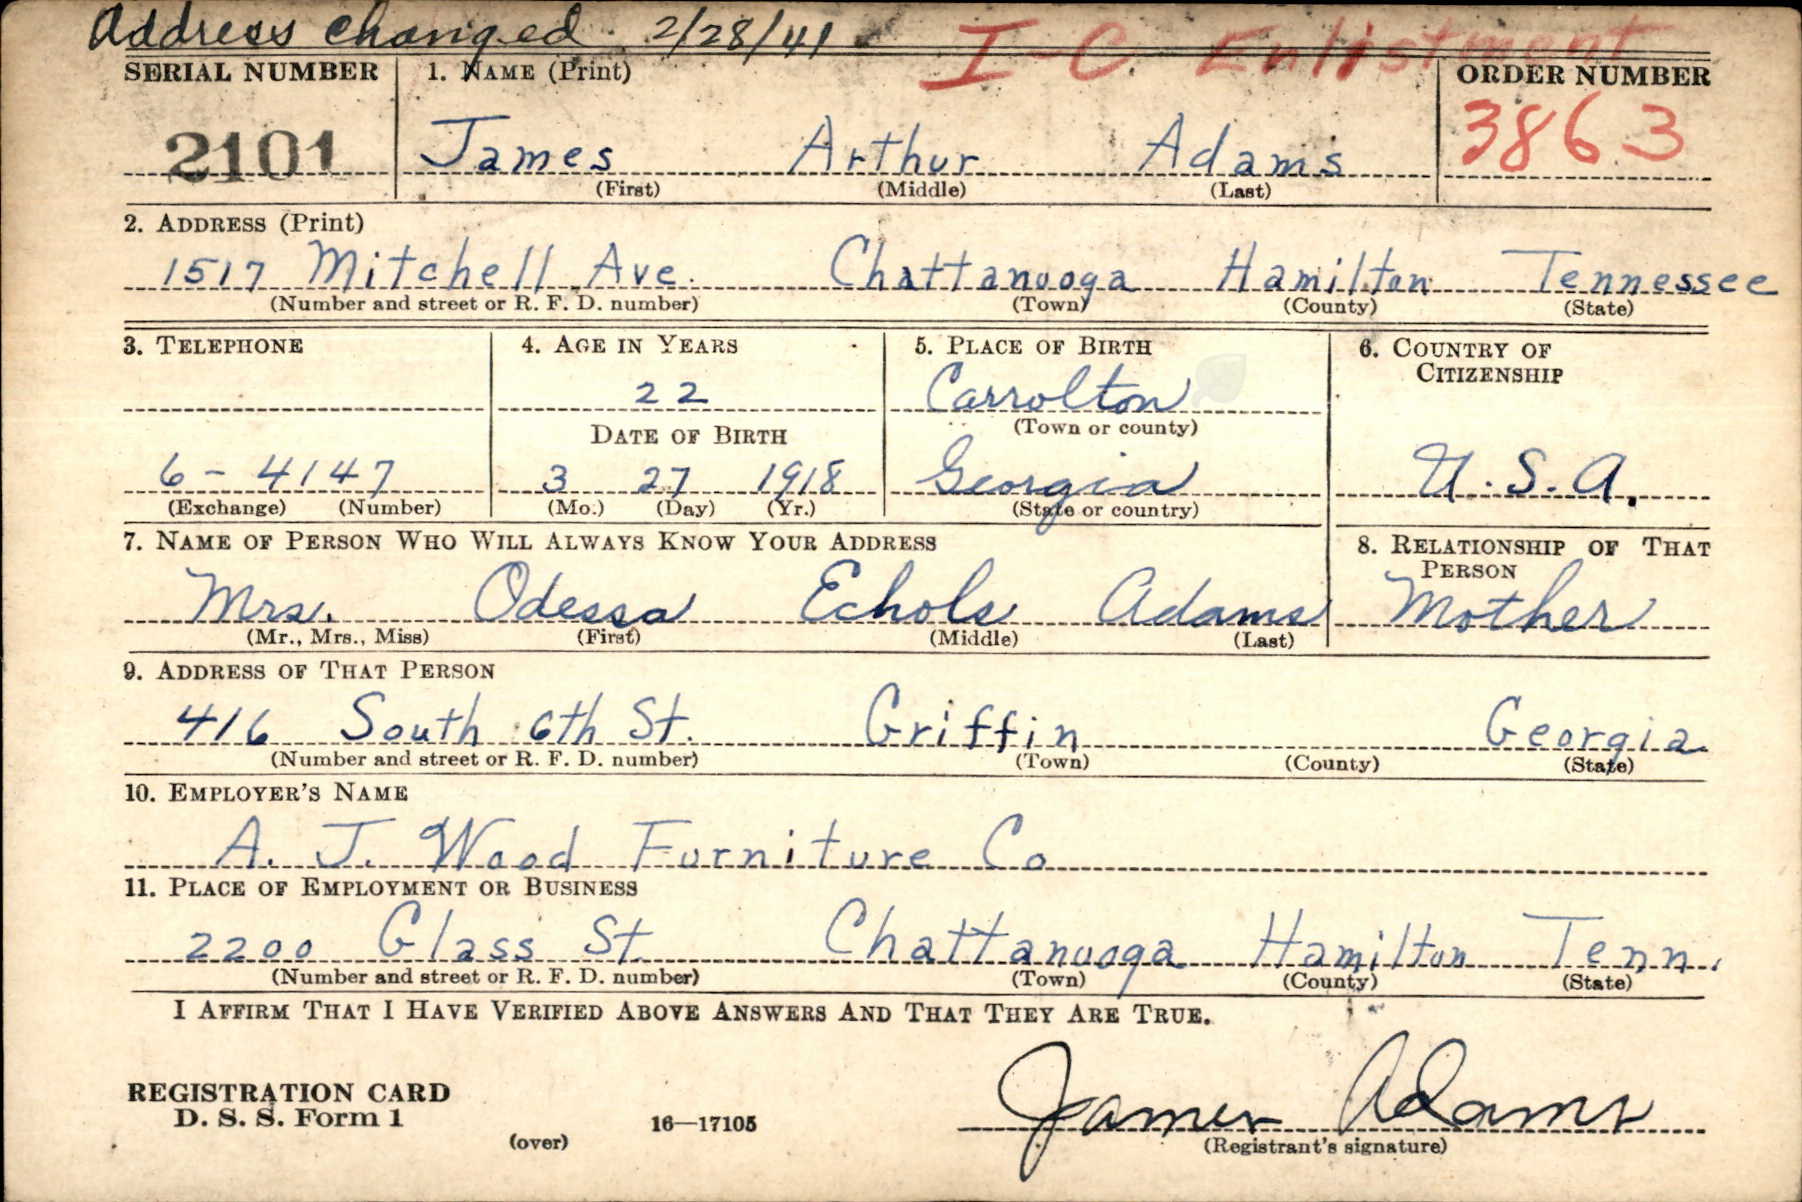 Address changed 2/28/41 I-C. Enlistment
SERIAL NUMBER 1. NAME (Print) ORDER NUMBER
2101 James Arthur Adams 3863
(First) (Middle) (Last)
2. ADDRESS (Print)
1517 Mitchell Ave. Chattanooga Hamilton Tennessee
(Number and street or R. F. D. number) (Town) (County) (State)
3. TELEPHONE 4. AGE IN YEARS 5. PLACE OF BIRTH 6. COUNTRY OF
CITIZENSHIP
22 Carrolton
DATE OF BIRTH (Town or county)
6-4147 3 27 1918 Georgia U.S.A.
(Exchange) (Number) (Mo.) (Day) (Yr.) (State or country)
7. NAME OF PERSON WHO WILL ALWAYS KNOW YOUR ADDRESS 8. RELATIONSHIP OF THAT
PERSON
Mrs. Odessa Echols Adams Mother
(Mr., Mrs., Miss) (First) (Middle) (Last)
9. ADDRESS OF THAT PERSON
416 South 6th St. Griffin Georgia
(Number and street or R. F. D. number) (Town) (County) (State)
10. EMPLOYER'S NAME
A. J. Wood Furniture Co
11. PLACE OF EMPLOYMENT OR BUSINESS
2200 Glass St. Chattanooga Hamilton Tenn.
(Number and street or R. F. D. number) (Town) (County) (State)
I AFFIRM THAT I HAVE VERIFIED ABOVE ANSWERS AND THAT THEY ARE TRUE.
REGISTRATION CARD
D. S. S. Form 1 James Adams
(over) 16—17105 (Registrant's signature)